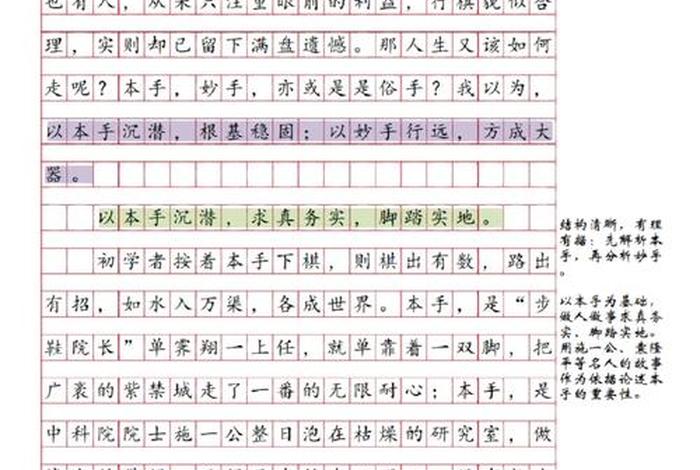 也有人，从来只注重眼前的利益，行棋貌似合
理，实则却已留下满盘遗憾。那人生又该如何
走呢？本手，妙手，亦或是是俗手？我以为，
以本手沉潜，根基稳固；以妙手行远，方成大
器。
以本手沉潜，求真务实，脚踏实地。
初学者按着本手下棋，则棋出有数，路出
有招，如水入万渠，各成世界。本手，是“步
鞋院长”单霁翔一上任，就单靠着一双脚，把
广袤的紫禁城走了一番的无限耐心；本手，是
中科院院士施一公整日泡在枯燥的研究室，做
结构清晰，有理
有据：先解析本
手，再分析妙手
。
以本手为基础，
做人做事求真务
实、脚踏实地。
用施一公、袁隆
平等名人的故事
作为依据论述本
手的重要性。